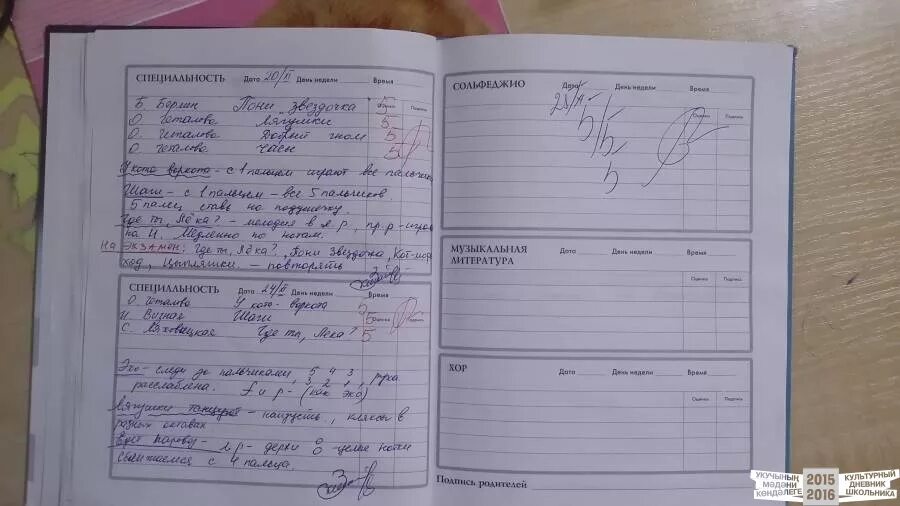 СПЕЦИАЛЬНОСТЬ Дата 20/II День недели Время
Оценки Подпись
Б. Берлин Пони звездочка 5
О. Геталова Лягушки 5
О. Геталова Добрый гном 5
О. Геталова Часы 5
У кота воркота - с 1 пальцем играют все пальчики
Шаги - с 1 пальцем - все 5 пальчиков.
5 палец ставь на подушечку.
Где ты, Лёка? - мелодия в л. р, пр. р - играет
на И. Медленно по нотам.
На экзамен: Где ты, Лёка?, Пони Звездочка, Кот-мореход,
Цыпляшки. - повторять
СПЕЦИАЛЬНОСТЬ Дата 24/II День недели Время
Оценки Подпись
О. Геталова У кота-воркота 5
И. Визная Шаги 5
С. Ляховицкая Где ты, Лёка? 5
Эхо - следи за пальчиками 5 4 3, рука
расслаблена. 3 2 1, f и p - (как эхо)
Лягушки танцуют - наизусть, кляксы в
разных октавах
Едет паровоз - л. р - держи целые ноты
считаемся с 4 пальца.
СОЛЬФЕДЖИО Дата День недели Время
Оценки Подпись
5/5
5
МУЗЫКАЛЬНАЯ ЛИТЕРАТУРА Дата День недели Время
Оценки Подпись
ХОР Дата День недели Время
Оценки Подпись
Подпись родителей
УКУЧЫНЫҢ МӘДӘНИ КӨНДӘЛЕГЕ 2015 2016 КУЛЬТУРНЫЙ ДНЕВНИК ШКОЛЬНИКА